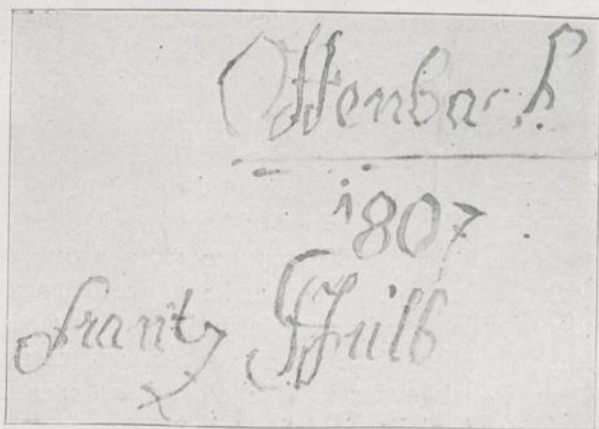 Offenbach
1807
frantz